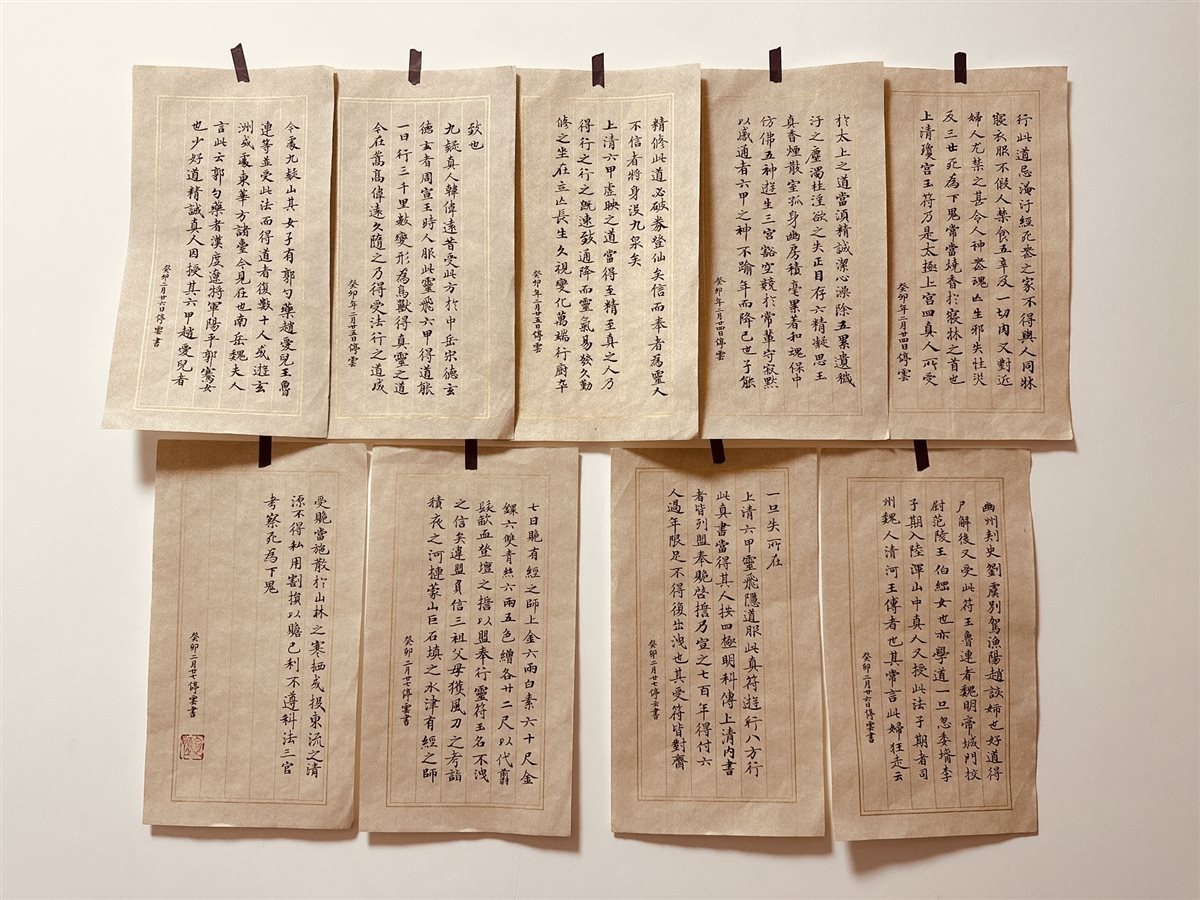 行此道忌淹汙經死喪之家不得與人同牀
寢衣服不假人禁食五辛及一切肉又對近
婦人尤禁之甚令人神喪魂亡生邪失性災
及三世死為下鬼常當燒香於寢牀之首也
上清瓊宮玉符乃是太極上宮四真人所受
癸卯年二月廿四日停雲
於太上之道當須精誠潔心澡除五累遺穢
汙之塵濁杜淫欲之失正目存六精凝思玉
真香煙散室孤身幽房積毫累著和魂保中
仿佛五神遊生三宮豁空競於常輩守寂默
以感通者六甲之神不踰年而降己也子能
癸卯年二月廿四日停雲
精修此道必破券登仙矣信而奉者為靈人
不信者將身沒九泉矣
上清六甲虛映之道當得至精至真之人乃
得行之行之既速致通降而靈氣易發久勤
修之坐在立亡長生久視變化萬端行廚卒
癸卯年二月廿五日停雲
致也
九疑真人韓偉遠昔受此方於中岳宋德玄
德玄者周宣王時人服此靈飛六甲得道能
一日行三千里數變形為鳥獸得真靈之道
今在嵩高偉遠久隨之乃得受法行之道成
癸卯年二月廿五日停雲
今處九疑山其女子有郭勺藥趙愛兒王魯
連等並受此法而得道者復數十人或遊玄
洲或處東華方諸臺今見在也南岳魏夫人
言此云郭勺藥者漢度遼將軍陽平郭騫女
也少好道精誠真人因授其六甲趙愛兒者
癸卯二月廿六日停雲書
幽州刾史劉虞別駕漁陽趙該姊也好道得
尸解後又受此符王魯連者魏明帝城門校
尉范陵王伯綱女也亦學道一旦忽委壻李
子期入陸渾山中真人又授此法子期者司
州魏人清河王傅者也其常言此婦狂走云
癸卯二月廿六日停雲書
一旦失所在
上清六甲靈飛隱道服此真符遊行八方行
此真書當得其人按四極明科傳上清內書
者皆列盟奉貹啓誓乃宣之七百年得付六
人過年限足不得復出洩也其受符皆對齋
癸卯二月廿七停雲書
七日貹有經之師上金六兩白素六十尺金
鐶六雙青絲六兩五色繒各廿二尺以代翦
髮歃血登壇之誓以盟奉行靈符玉名不洩
之信矣違盟負信三祖父母獲風刀之考詣
積夜之河揵蒙山巨石填之水津有經之師
癸卯二月廿七停雲書
受貹當施散於山林之寒栖或投東流之清
源不得私用割損以贍己利不遵科法三官
考察死為下鬼
癸卯二月廿七停雲書